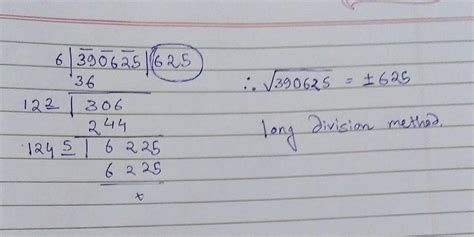 6 | 390625 | 625
36
122 | 306
244
1245 | 6225
6225
x
∴ √390625 = ±625
long division method.